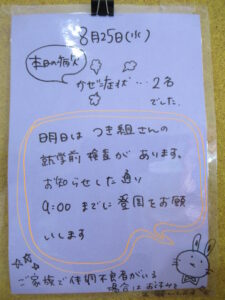 8月25日(水)
本日の病人
かぜ症状…2名
でした.
明日は つき組さんの
就学前 検査が あります。
お知らせした通り
9:00 までに 登園をお願
いします
ご家族で体調不良者がいる
場合は お